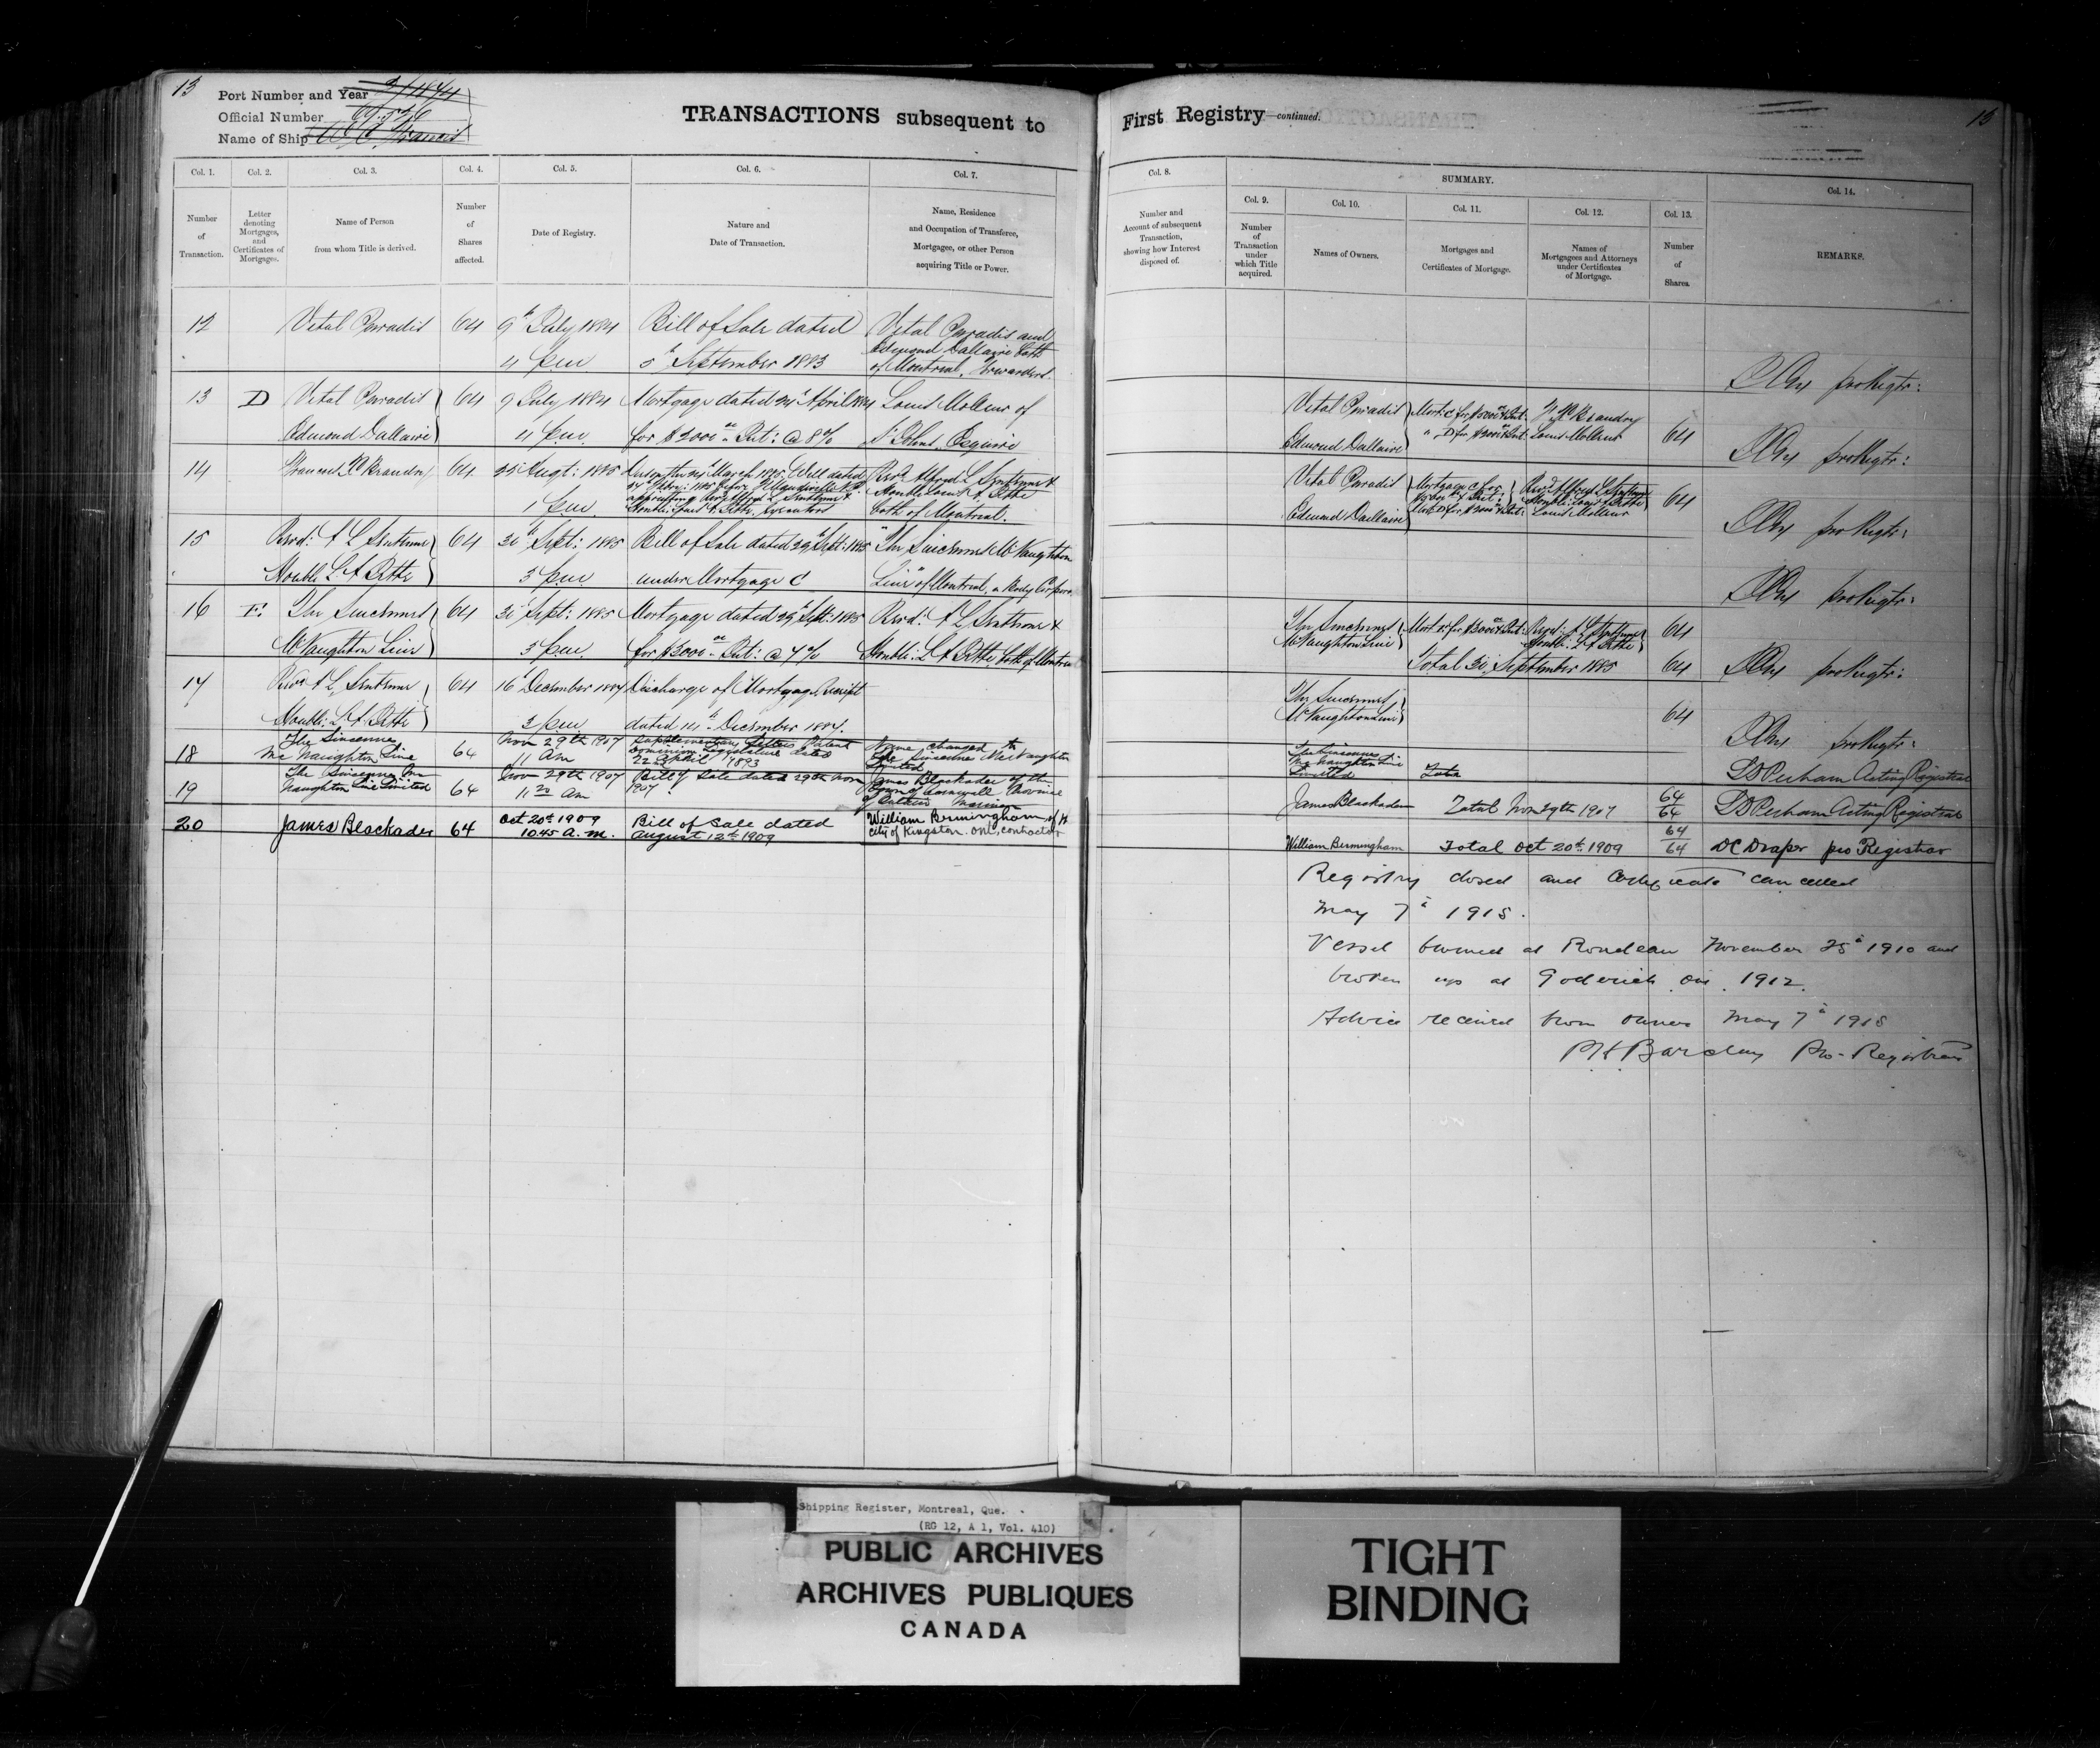 13
Port Number and Year
Official Number
Name of Ship
TRANSACTIONS subsequent to
Col. 1. Col. 2. Col. 3. Col. 4. Col. 5. Col. 6. Col. 7.
Number of Transaction.
Letter denoting Mortgages, and Certificates of Mortgages.
Name of Person from whom Title is derived.
Number of Shares affected.
Date of Registry.
Nature and Date of Transaction.
Name, Residence and Occupation of Transferee, Mortgagee, or other Person acquiring Title or Power.
12 Vital Paradis 64 9th July 1884 Bill of Sale dated Vital Paradis and
Edmond Dallaire both
4 pm 5th September 1883 of Montreal, Forwarders.
13 D Vital Paradis 64 9 July 1884 Mortgage dated 24 April 1884 Louis Molleur of
Edmond Dallaire 4 pm for $2000 Int: @ 8% St Johns, Esquire
14 64 25 Augt: 1885 March 1885 Will dated Revd Alfred L
Honble Louis
1 pm both of Montreal.
15 Revd: A L 64 30th Sept: 1885 Bill of Sale dated 29th Sept: 1885 "The Sincennes McNaughton
Honble L A 3 pm under Mortgage C Line" of Montreal, a Body
16 E The Sincennes 64 30 Sept: 1885 Mortgage dated 29th Sept: 1885 Revd: A L
McNaughton Line 3 pm for $3000 Int: @ 7% Honble: L A both of Montreal
17 Revd A L 64 16 December 1887 Discharge of Mortgage Receipt
Honble: L A 3 pm dated 14th December 1887.
18 The Sincennes Mc Naughton Line 64 Nov 29th 1907 11 Am Supplementary Letters Patent Dominion Legislature dated 22nd April 1893 Name changed to The Sincennes McNaughton Limited
19 The Sincennes Mc Naughton Line Limited 64 Nov 29th 1907 11 20 Am Bill of Sale dated 29th Nov 1907. James Blackader of the Town of Cornwall Province of Ontario Mariner
20 James Blackader 64 Oct 20th 1909 10.45 A.M. Bill of Sale dated August 12th 1909 William Bermingham of the City of Kingston. Ont, contractor
First Registry—continued.
13
SUMMARY.
Col. 8. Col. 9. Col. 10. Col. 11. Col. 12. Col. 13. Col. 14.
Number and Account of subsequent Transaction, showing how Interest disposed of.
Number of Transaction under which Title acquired.
Names of Owners.
Mortgages and Certificates of Mortgage.
Names of Mortgagees and Attorneys under Certificates of Mortgage.
Number of Shares.
REMARKS.
pro Regtr:
Vital Paradis Mort: C for
Edmond Dallaire D for $2000 & Int: Louis Molleur 64
pro Regtr:
Vital Paradis Mortgage C for Revd Alfred L
Edmond Dallaire D for $2000 & Int: Louis Molleur 64
pro Regtr:
pro Regtr:
The Sincennes Mort E for $3000 & Int: Revd: A L 64
McNaughton Line Honble: L A
Total 30 September 1885 64
pro Regtr:
The Sincennes
McNaughton Line 64
pro Regtr:
The Sincennes Mc Naughton Line Limited Total 64/64 Acting Registrar
James Blackader Total Nov 29th 1907 64/64 Acting Registrar
William Bermingham Total Oct 20th 1909 64 DC Draper pro Registrar
Registry closed and Certificate cancelled
May 7th 1915.
Vessel burned at Rondeau November 25th 1910 and
broken up at Goderich Ont. 1912.
Advice received from owner May 7th 1915
Barclay Pro-Registrar
Shipping Register, Montreal, Que.
(RG 12, A 1, Vol. 410)
PUBLIC ARCHIVES
ARCHIVES PUBLIQUES
CANADA
TIGHT
BINDING